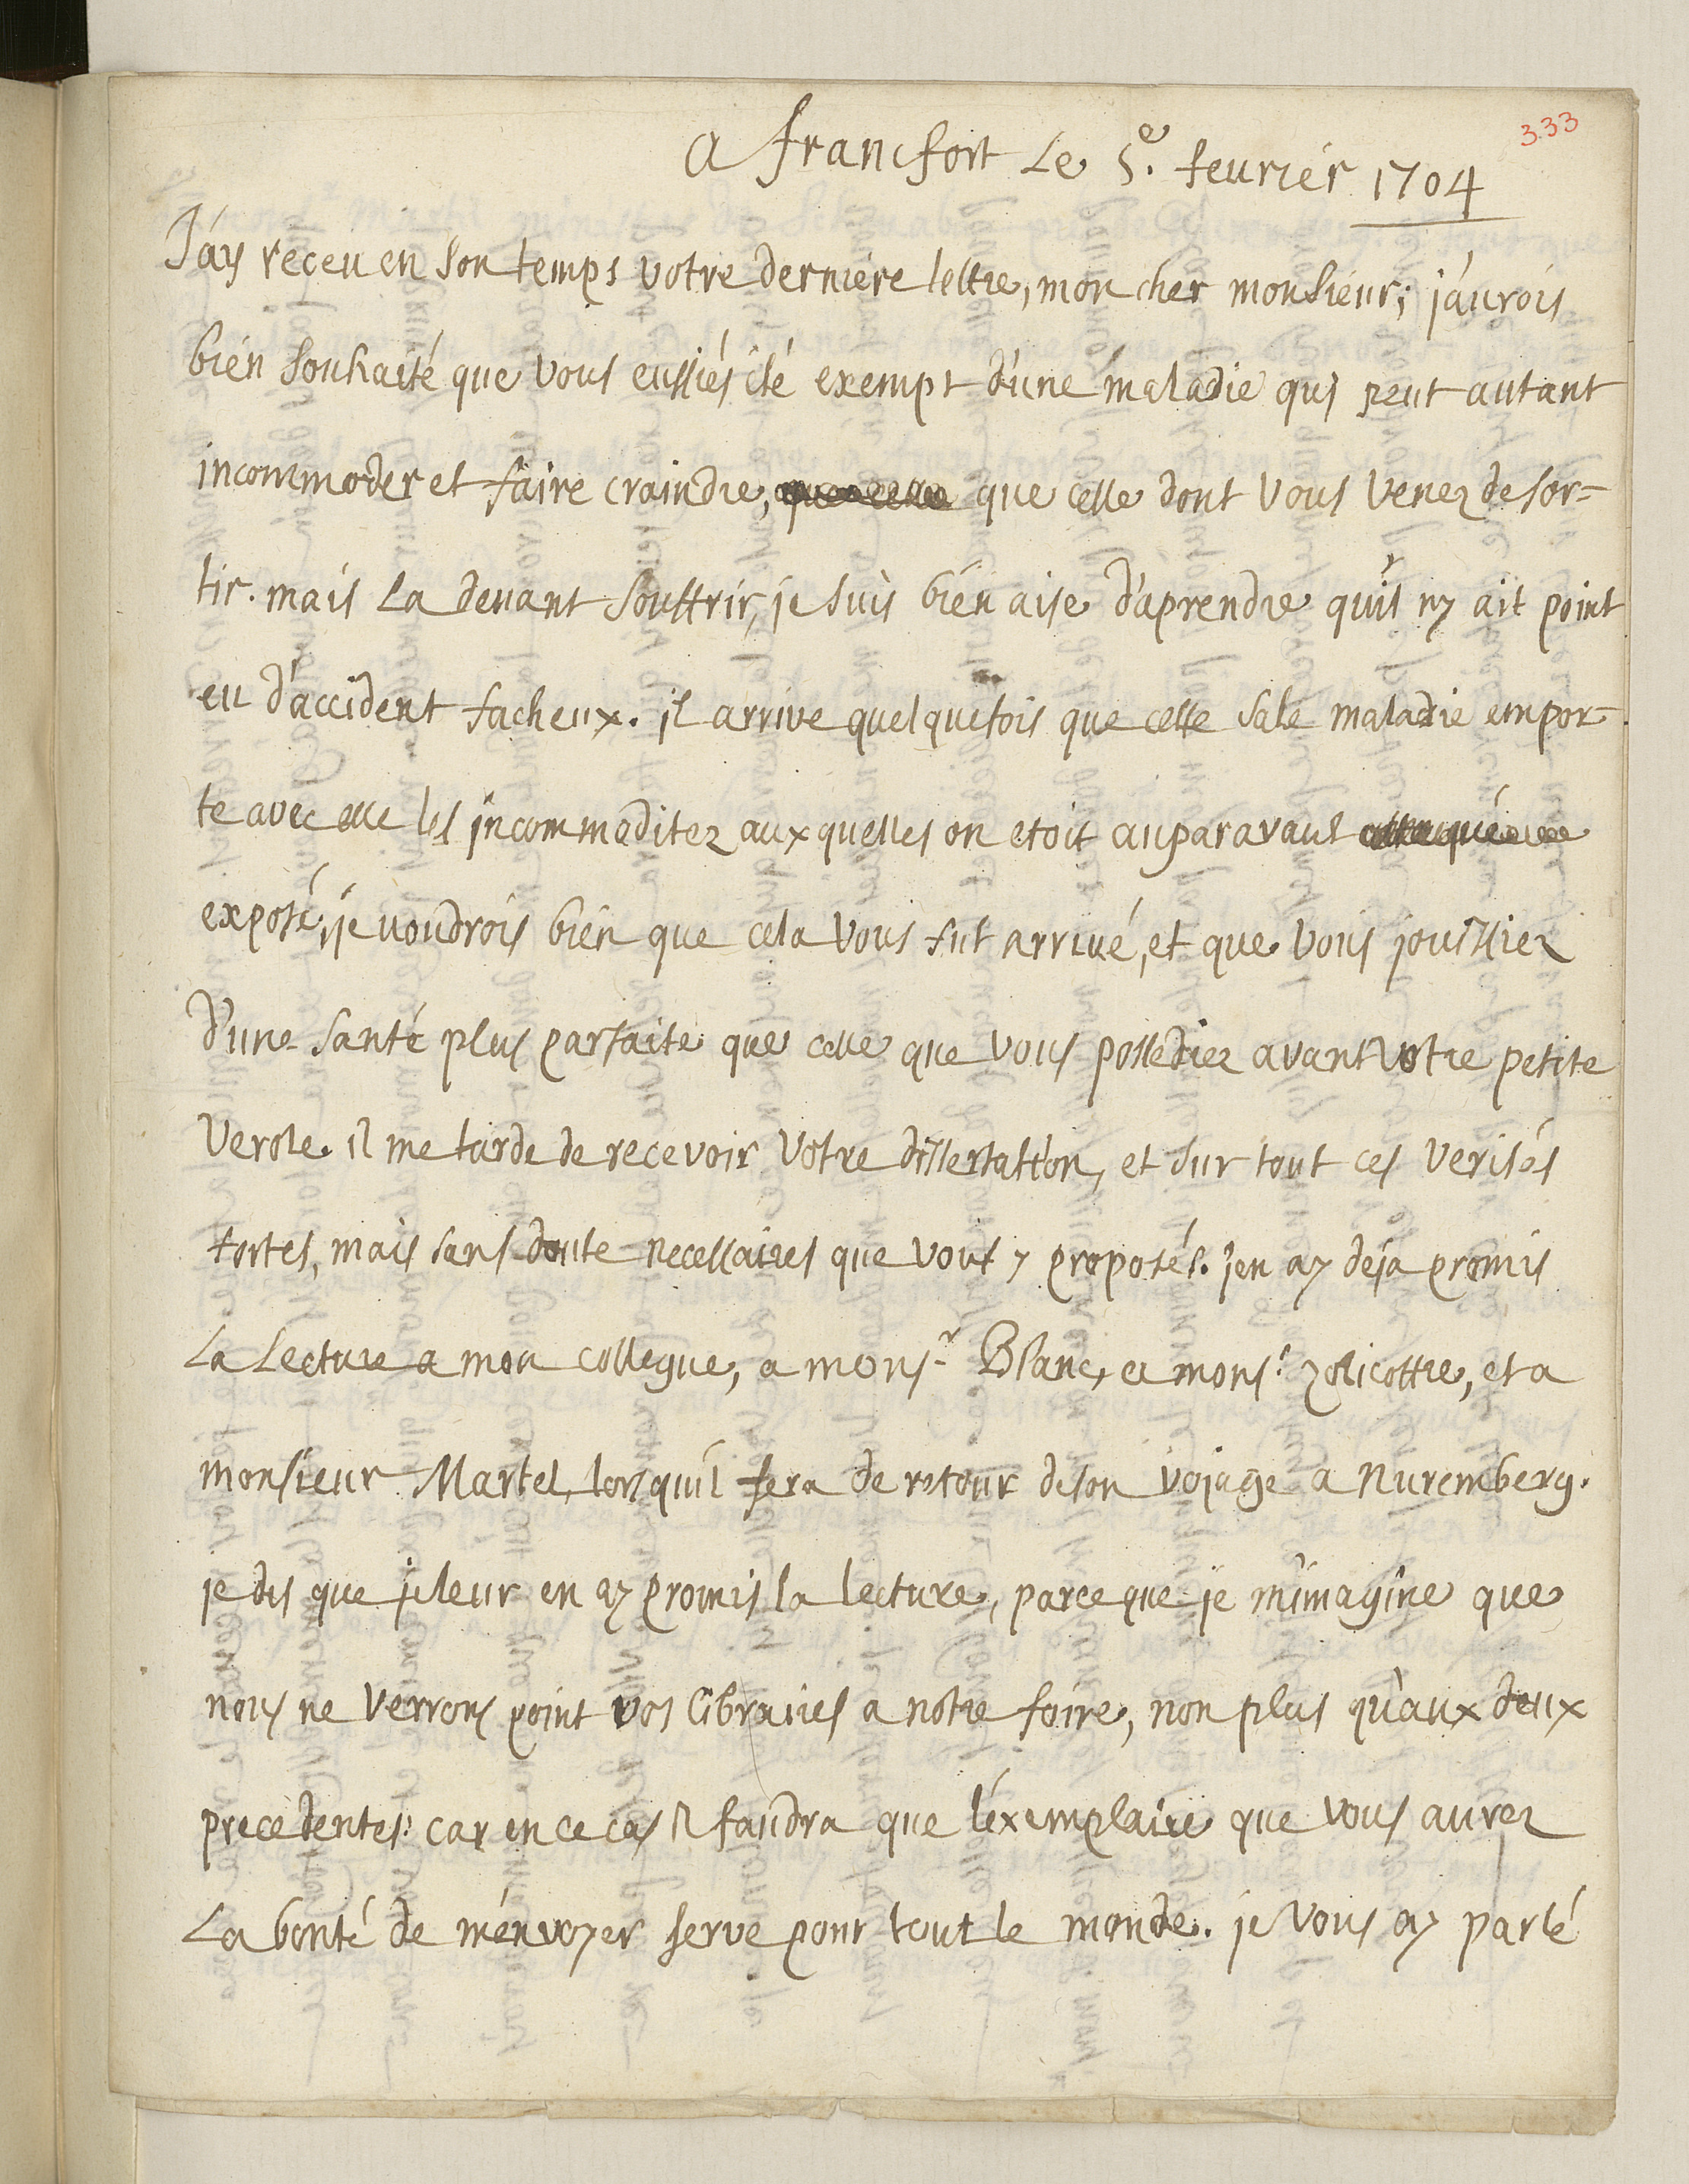 333
A francfort Le 5.e feurier 1704
J'ay receu en son temps votre derniere lettre, mon cher monsieur; j'aurois
bien souhaité que vous eussiés été exempt d'une maladie qui peut autant
incommoder et faire craindre, que celle dont vous venez de sor=
tir. mais la devant souffrir, je suis bien aise d'aprendre qu'il ny ait point
eu d'accident facheux. il arrive quelquefois que cette sale maladie empor-
te avec elle les incommoditez auxquelles on etoit auparavant
exposé, je voudrois bien que cela vous fut arrivé, et que vous jouissiez
d'une santé plus parfaite que celle que vous possediez avant votre petite
verole. il me tarde de recevoir votre dissertation, et sur tout ces verités
fortes, mais sans doute necessaires que vous y proposés. j'en ay deja promis
La Lecture a mon collegue, a monsr. Blanc, a monsr. zollicoffre, et a
monsieur Martel, lorsqu'il sera de retour de son vojage a Nuremberg.
je dis que je leur en ay promis la lecture, parce que je m'imagine que
nous ne verrons point vos libraires a notre foire, non plus qu'aux deux
precedentes: car en ce cas il faudra que l'éxemplaire que vous aurez
La bonté de m'énvoyer serve pour tout le monde. je vous ay parlé